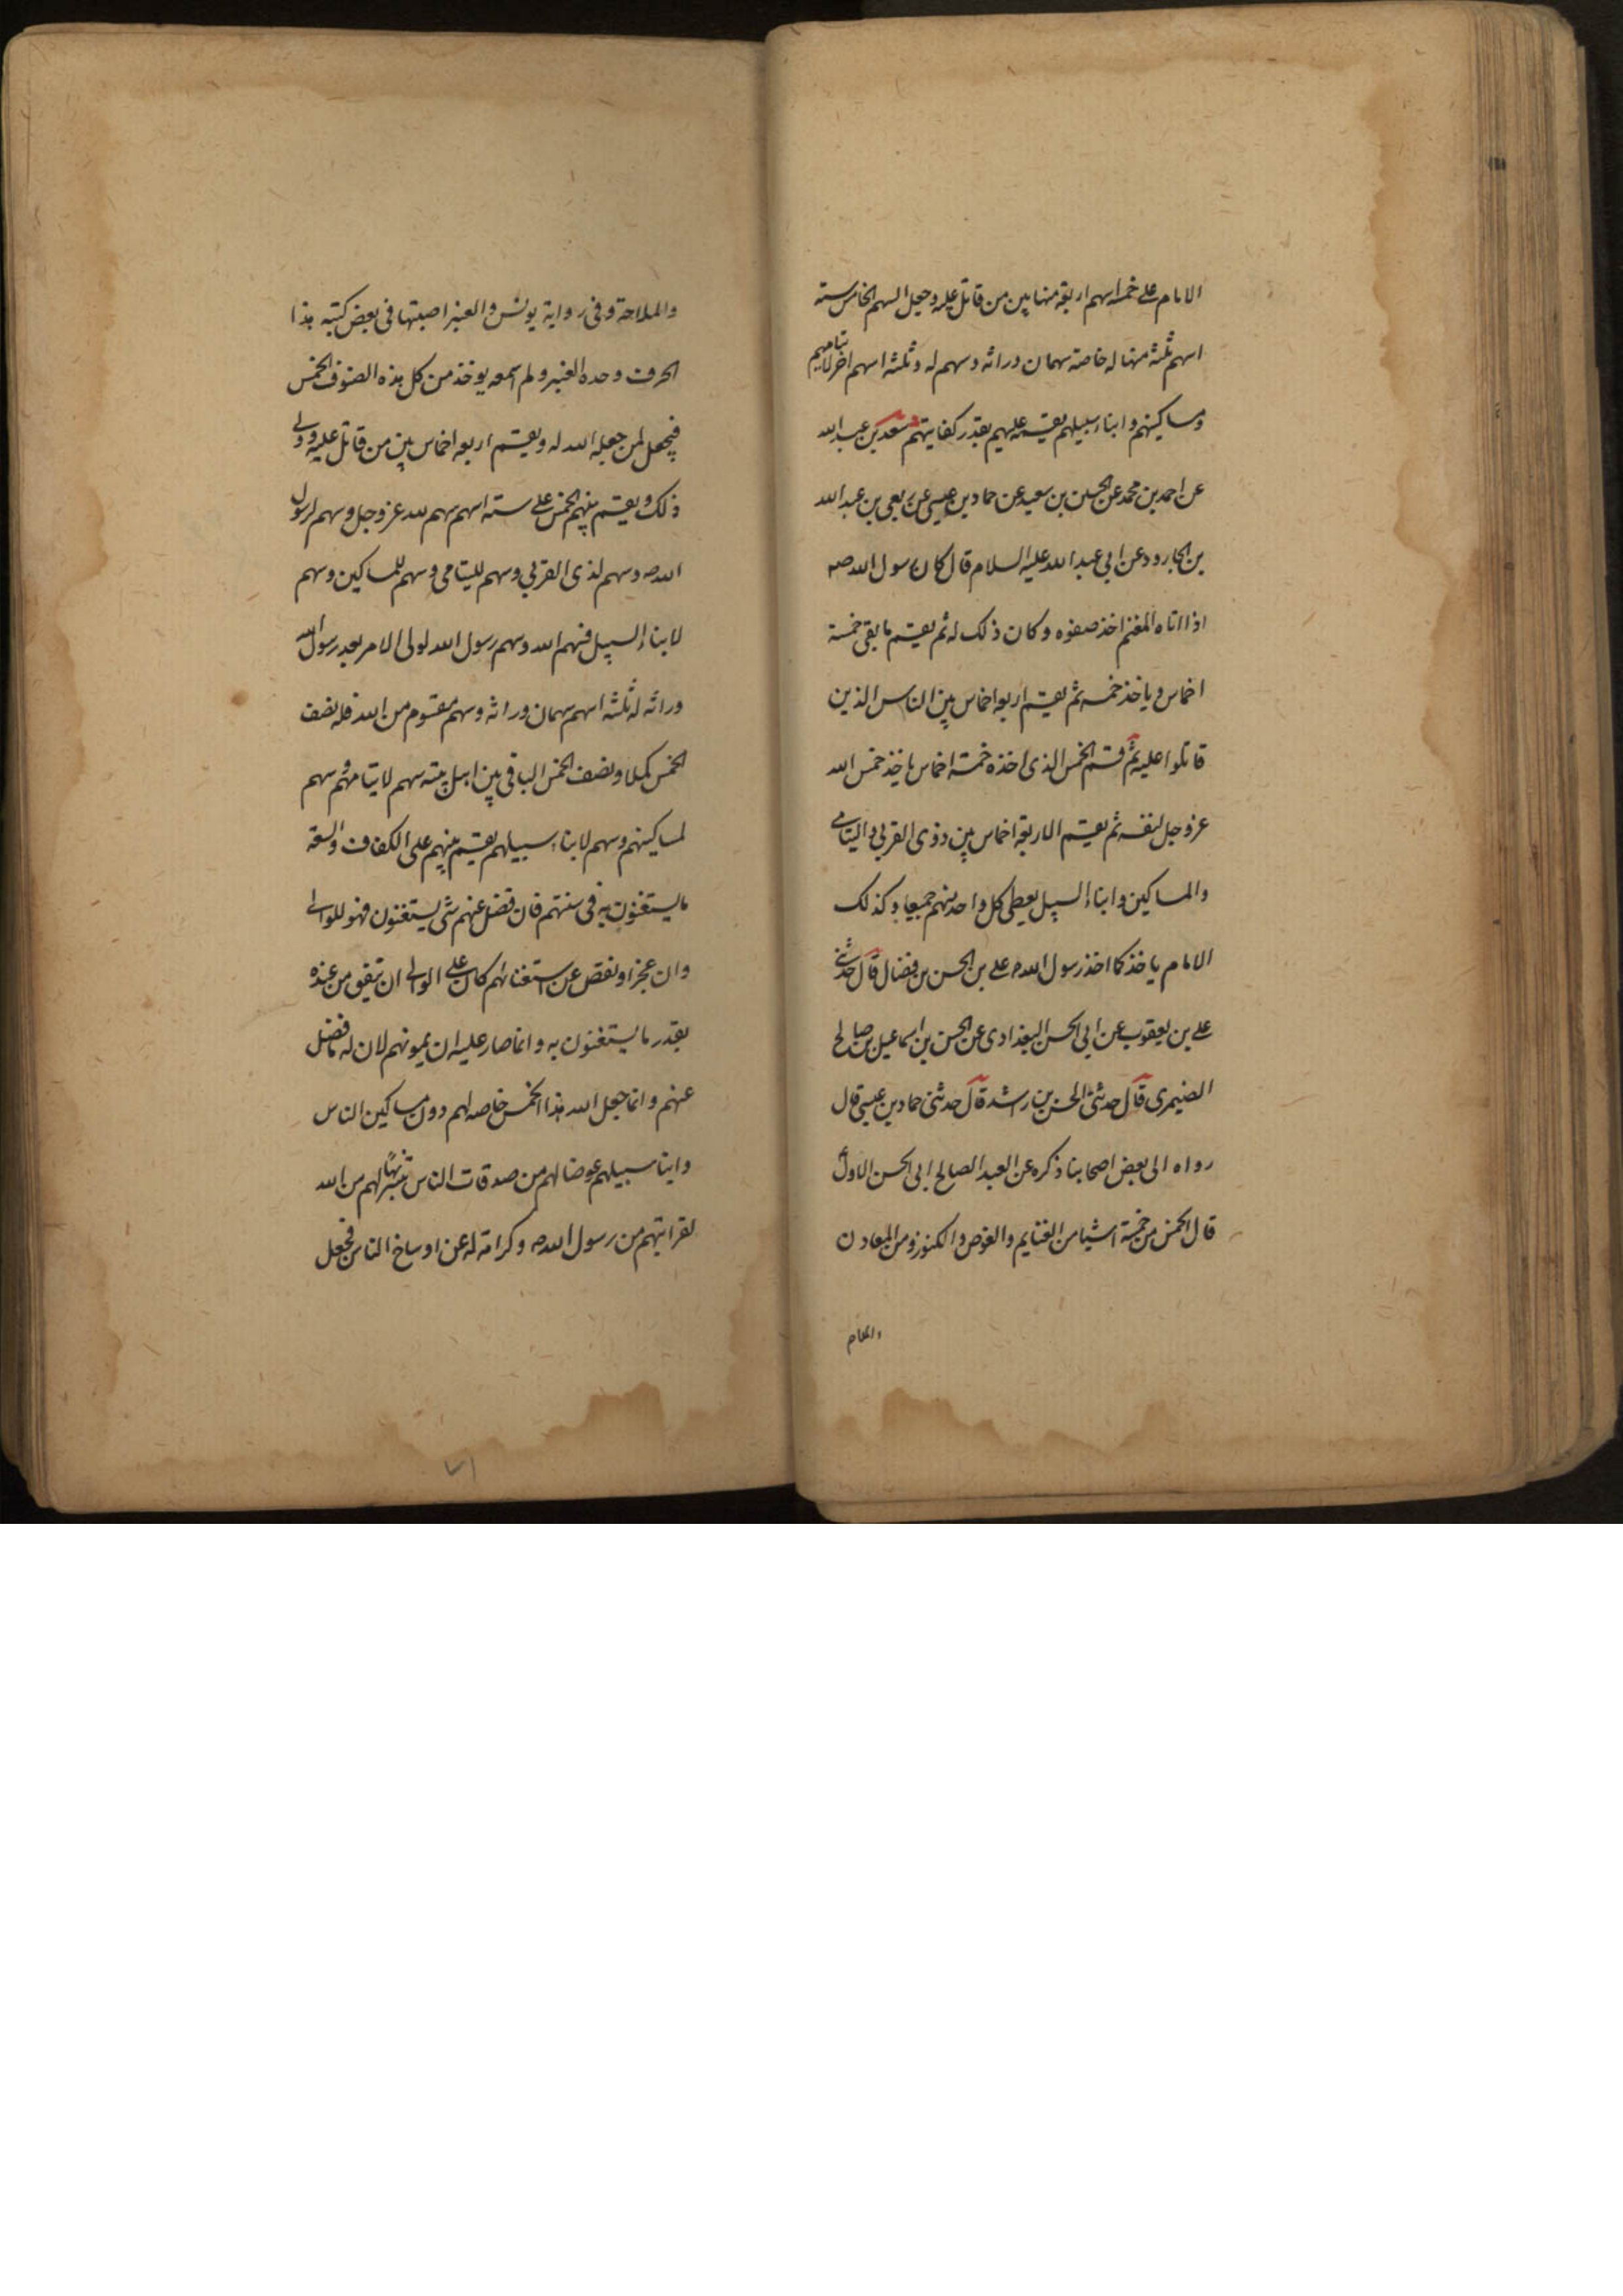 الامام على خمسة اسهم اربعة منها بين من قاتل عليه وجعل السهم الخامس ستة
اسهم ثلثة منها له خاصة سهمان وراثه وسهم له وثلثة اسهم اخر لايتامهم
ومساكينهم وابناء سبيلهم يقسمه عليهم بقدر كفايتهم سعد بن عبد الله
عن احمد بن محمد عن الحسين بن سعيد عن حماد بن عيسى عن ربعى بن عبد الله
بن الجارود عن ابى عبد الله عليه السلام قال كان رسول الله صه
اذا اتاه المغنم اخذ صفوه وكان ذلك له ثم يقسم ما بقى خمسة
اخماس وياخذ خمسه ثم يقسم اربعه اخماس بين الناس الذين
قاتلوا عليه ثم قسم الخمس الذى اخذه خمسة اخماس ياخذ خمس الله
عز وجل لنفسه ثم يقسم الاربعة اخماس بين ذوى القربى واليتامى
والمساكين وابناء السبيل يعطى كل واحد منهم جميعا وكذلك
الامام ياخذ كما اخذ رسول الله صه على بن الحسن بن فضال قال حدثنى
على بن يعقوب عن ابى الحسن البغدادى عن الحسن بن اسماعيل بن صالح
الصيمرى قال حدثنى الحسن بن راشد قال حدثنى حماد بن عيسى قال
رواه الى بعض اصحابنا ذكره عن العبد الصالح ابى الحسن الاول ع
قال الخمس من خمسة اشيا من الغنايم والغوص والكنوز ومن المعادن
والملاحة وفى رواية يونس والعنبر اصبتها فى بعض كتبه هذا
الحرف وحده العنبر ولم اسمعه يوخذ من كل هذه الصنوف الخمس
فيجعل لمن جعله الله له ويقسم اربعه اخماس بين من قاتل عليه وولى
ذلك ويقسم بينهم الخمس على سته اسهم سهم لله عز وجل وسهم لرسول
الله صه وسهم لذى القربى وسهم لليتامى وسهم للمساكين وسهم
لابناء السبيل فسهم الله وسهم رسول الله لولى الامر بعد رسول الله
وراثه له ثلثه اسهم سهمان وراثه وسهم مقسوم من الله فله نصف
الخمس كملا ونصف الخمس الباقى بين اهل بيته سهم لايتامهم وسهم
لمساكينهم وسهم لابناء سبيلهم يقسم بينهم على الكفاف والسعة
ما يستغنون به فى سنتهم فان فضل عنهم شى يستغنون فهو للوالى
وان عجز او نقص عن استغنائهم كان على الوالى ان ينفق من عنده
بقدر ما يستغنون به وانما صار عليه ان يمونهم لان له ما فضل
عنهم وانما جعل الله هذا الخمس خاصه لهم دون مساكين الناس
وابنا سبيلهم عوضا لهم من صدقات الناس تنزيها لهم من الله
لقرابتهم من رسول الله صه وكرامة له عن اوساخ الناس فجعل